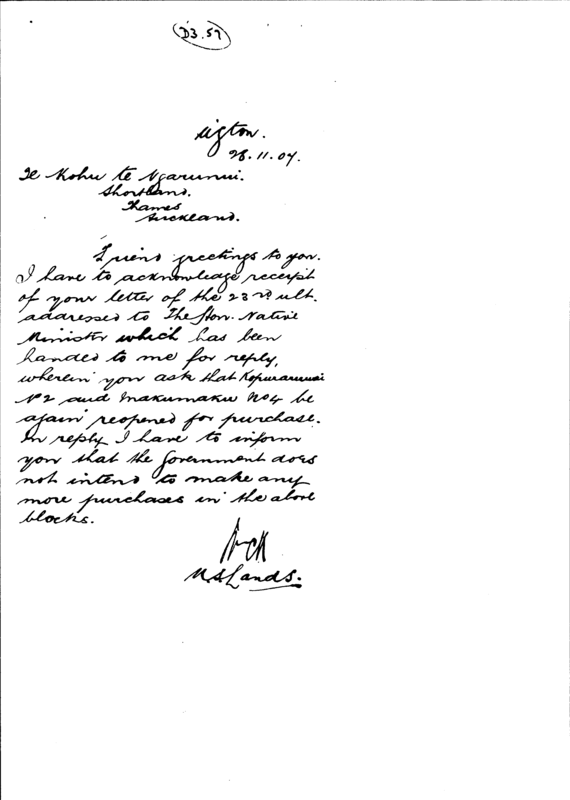 D3.59
Wgton.
28.11.07.
Te Kohu te Ngarunui.
Shortland.
Thames
Auckland.
Friend greetings to you.
I have to acknowledge receipt
of your letter of the 23rd ult.
addressed to The Hon. Native
Minister which has been
handed to me for reply,
wherein you ask that Kopuraruwai
No 2 and Makumaku No4 be
again reopened for purchase.
In reply I have to inform
you that the Government does
not intend to make any
more purchases in the above
blocks.
U.S Lands.